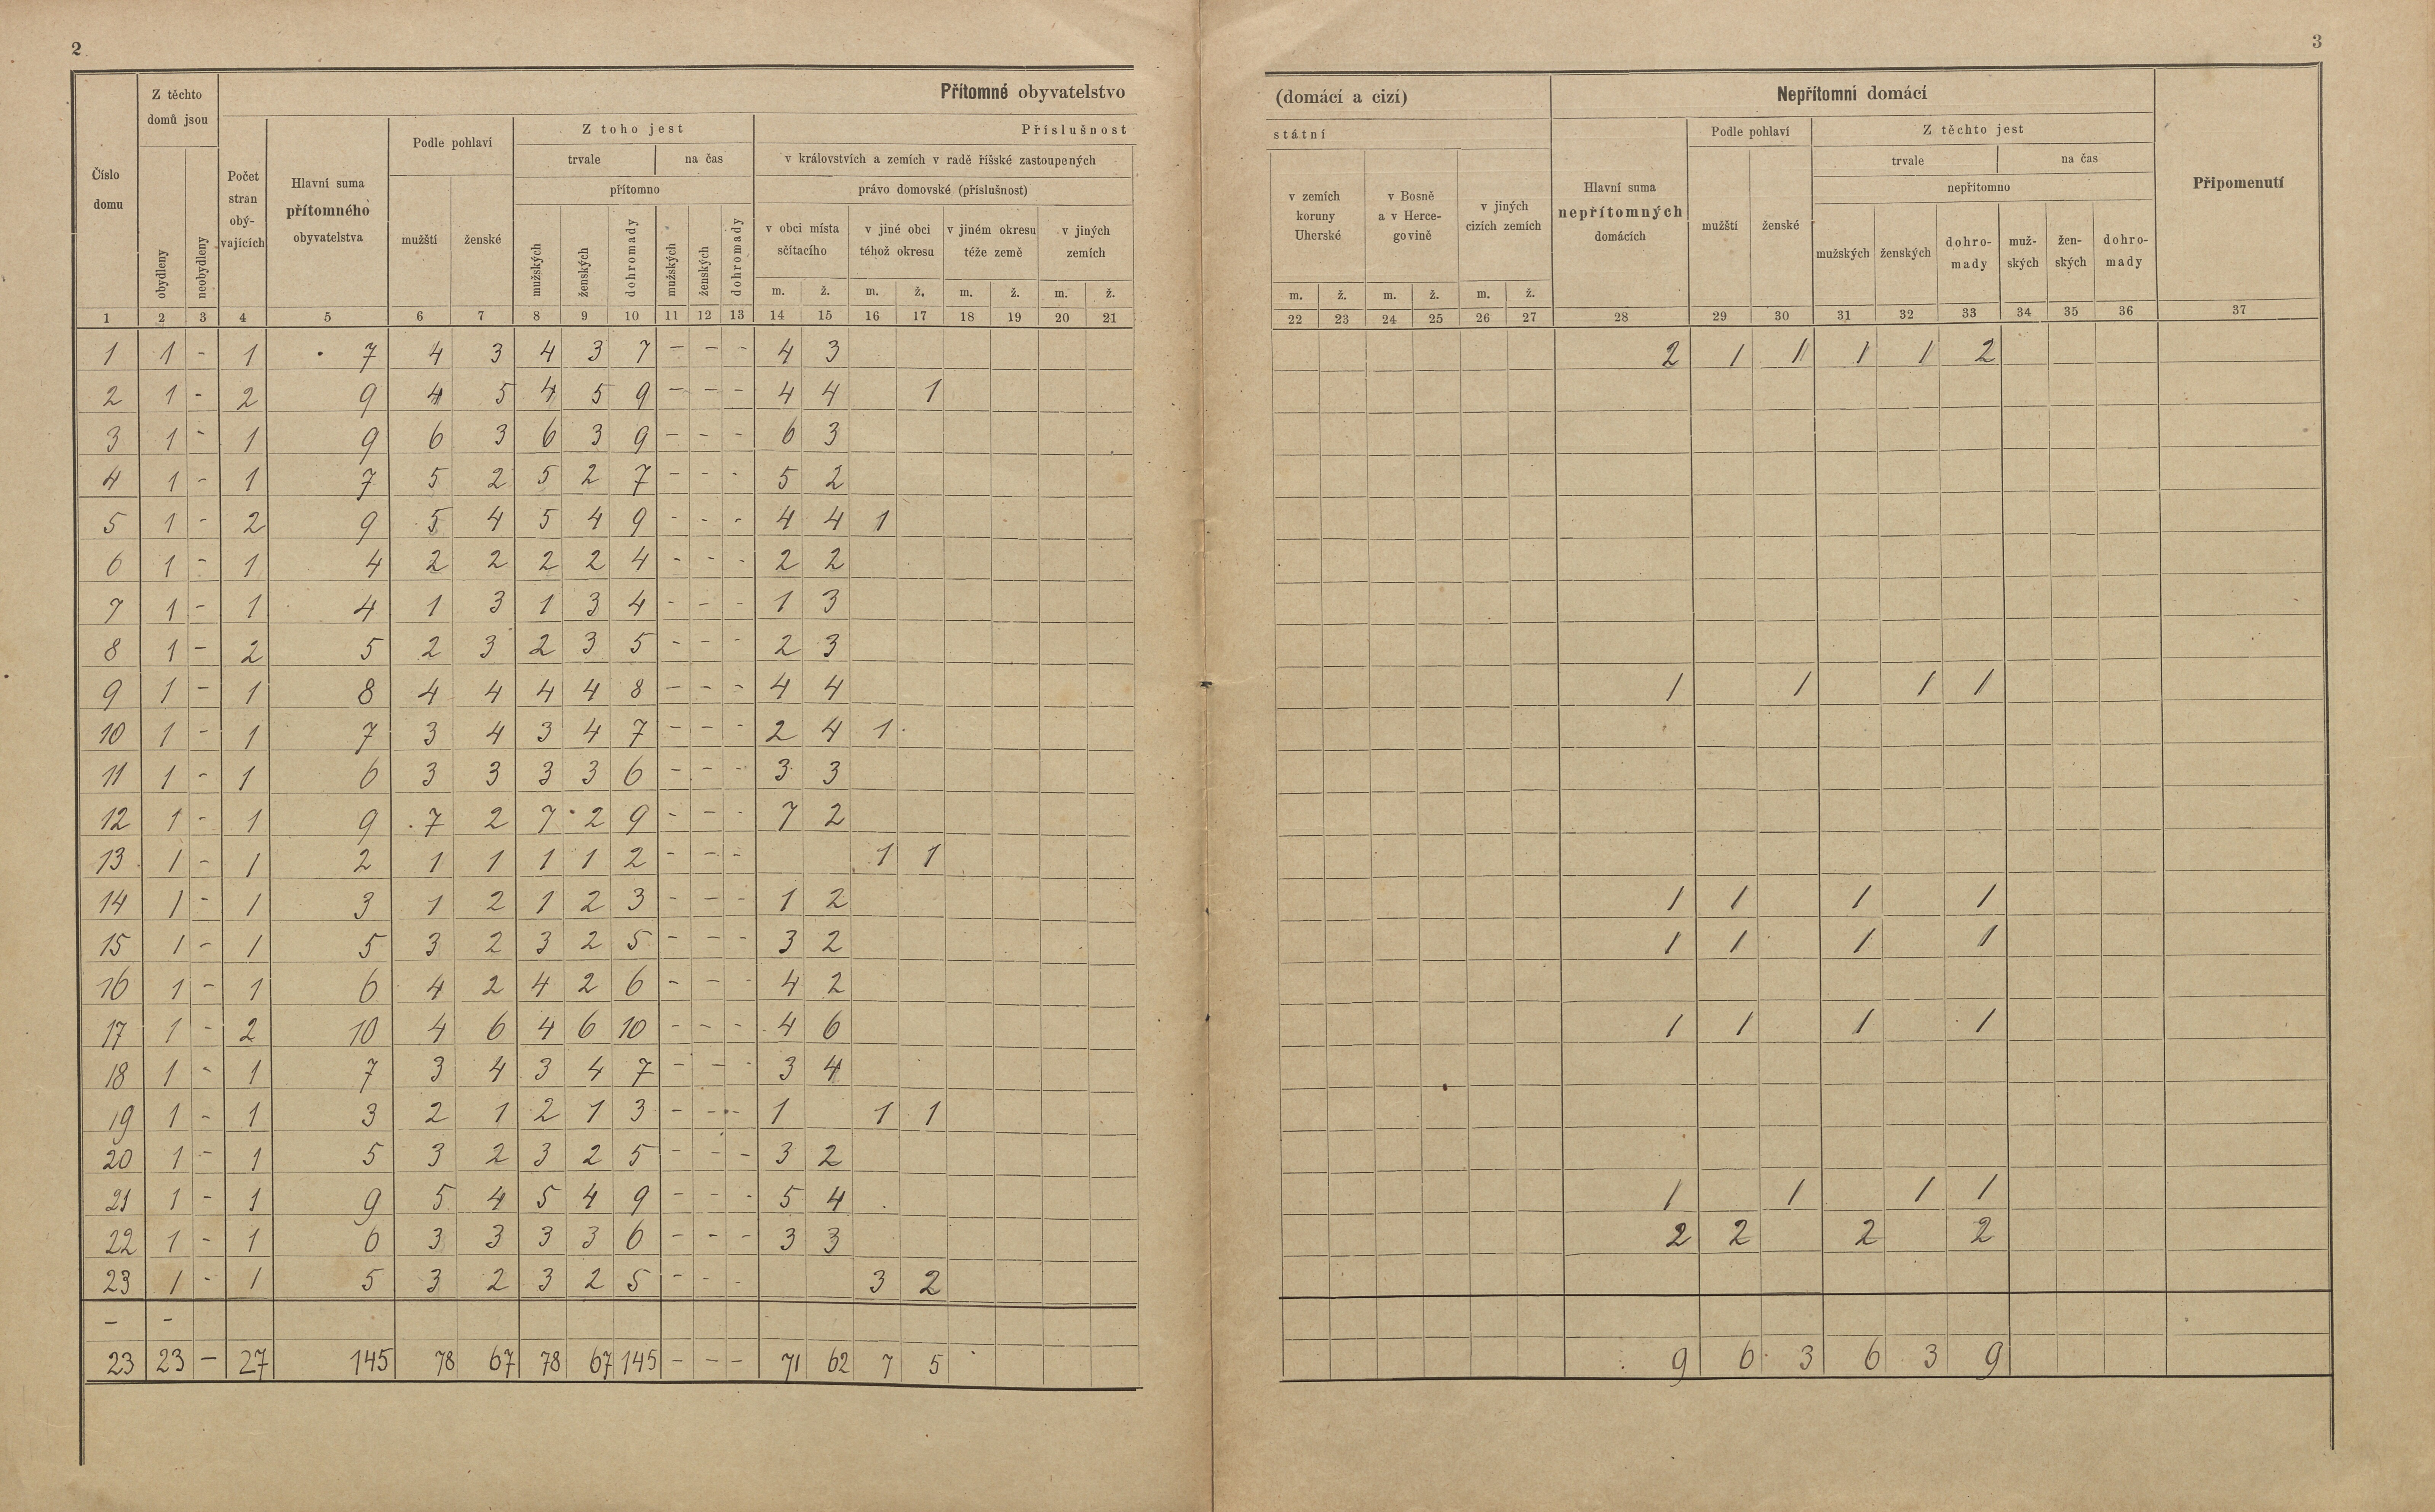 2
3
Přítomné obyvatelstvo
(domácí a cizí)
Nepřítomní domácí
Číslo domu
Z těchto domů jsou
obydleny
neobydleny
Počet stran obý-vajících
Hlavní suma přítomného obyvatelstva
Podle pohlaví
mužští
ženské
Z toho jest
trvale
na čas
přítomno
mužských
ženských
dohromady
mužských
ženských
dohromady
Příslušnost
státní
v královstvích a zemích v radě říšské zastoupených
právo domovské (příslušnost)
v obci místa sčítacího
v jiné obci téhož okresu
v jiném okresu téže země
v jiných zemích
m. ž. m. ž. m. ž. m. ž.
v zemích koruny Uherské
v Bosně a v Herce-govině
v jiných cizích zemích
m. ž. m. ž. m. ž.
Hlavní suma nepřítomných domácích
Podle pohlaví
mužští
ženské
Z těchto jest
trvale
na čas
nepřítomno
mužských
ženských
dohro-mady
muž-ských
žen-ských
dohro-mady
Připomenutí
1 2 3 4 5 6 7 8 9 10 11 12 13 14 15 16 17 18 19 20 21 22 23 24 25 26 27 28 29 30 31 32 33 34 35 36 37
1 1 - 1 7 4 3 4 3 7 - - - 4 3 2 1 1 1 1 2
2 1 - 2 9 4 5 4 5 9 - - - 4 4 1
3 1 - 1 9 6 3 6 3 9 - - - 6 3
4 1 - 1 7 5 2 5 2 7 - - - 5 2
5 1 - 2 9 5 4 5 4 9 - - - 4 4 1
6 1 - 1 4 2 2 2 2 4 - - - 2 2
7 1 - 1 4 1 3 1 3 4 - - - 1 3
8 1 - 2 5 2 3 2 3 5 - - - 2 3
9 1 - 1 8 4 4 4 4 8 - - - 4 4 1 1 1 1
10 1 - 1 7 3 4 3 4 7 - - - 2 4 1
11 1 - 1 6 3 3 3 3 6 - - - 3 3
12 1 - 1 9 7 2 7 2 9 - - - 7 2
13 1 - 1 2 1 1 1 1 2 - - - 1 1
14 1 - 1 3 1 2 1 2 3 - - - 1 2 1 1 1 1
15 1 - 1 5 3 2 3 2 5 - - - 3 2 1 1 1 1
16 1 - 1 6 4 2 4 2 6 - - - 4 2
17 1 - 2 10 4 6 4 6 10 - - - 4 6 1 1 1 1
18 1 - 1 7 3 4 3 4 7 - - - 3 4
19 1 - 1 3 2 1 2 1 3 - - - 1 1 1
20 1 - 1 5 3 2 3 2 5 - - - 3 2
21 1 - 1 9 5 4 5 4 9 - - - 5 4 1 1 1 1
22 1 - 1 6 3 3 3 3 6 - - - 3 3 2 2 2 2
23 1 - 1 5 3 2 3 2 5 - - - 3 2
- -
23 23 - 27 145 78 67 78 67 145 - - - 71 62 7 5 9 6 3 6 3 9